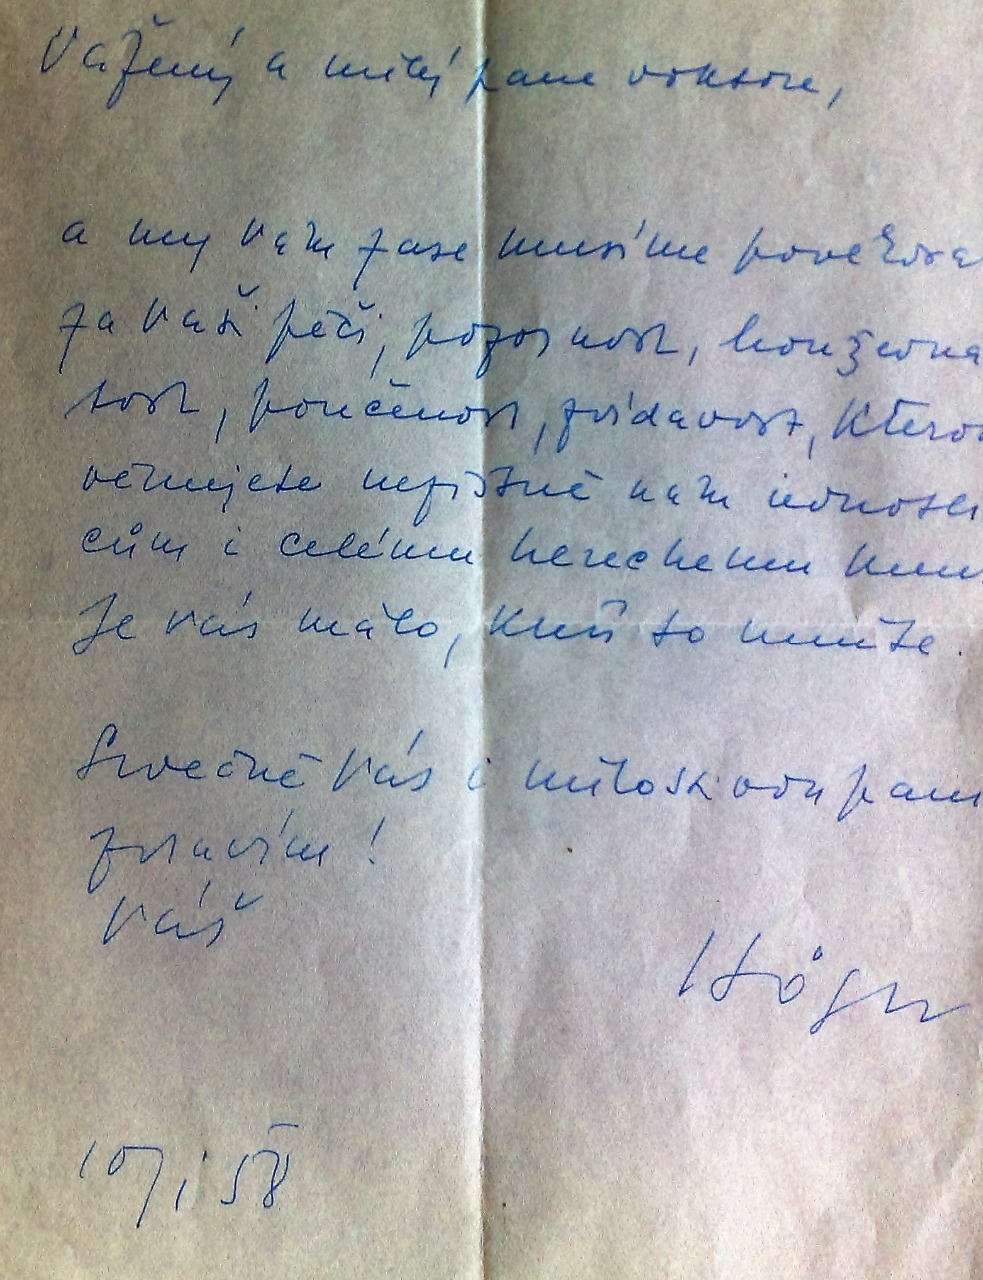 Vážený a milý pane doktore,
a my Vám zase musíme poděkova
za Vaši péči, pozornost, houževna
tost, poučenost, zvídavost, kterou
věnujete nezištně nám jednotli
cům i celému hereckemu
Je vás málo, kteří to umíte.
Srdečně Vás i milostivou paní
zdravím!
Váš
Högr
10/I 58